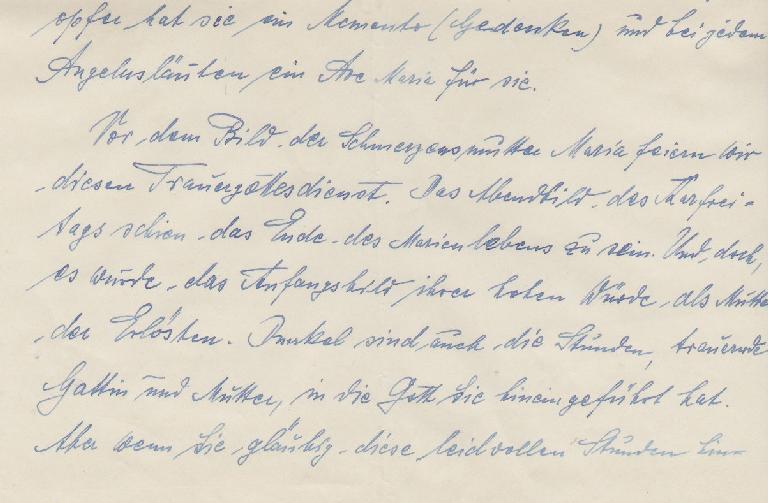 opfer hat sie ein Memento (Gedenken) und bei jedem
Angelusläuten ein Ave Maria für sie.
Vor dem Bild der Schmerzensmutter Maria feiern wir
diesen Trauergottesdienst. Das Abendbild des Karfrei-
tags schien das Ende des Marienlebens zu sein. Und doch,
es wurde das Anfangsbild ihrer hohen Würde als Mutter
der Erlösten. Dunkel sind auch die Stunden, trauernde
Gattin und Mutter, in die Gott Sie hineingeführt hat.
Aber wenn Sie gläubig diese leidvollen Stunden hin-